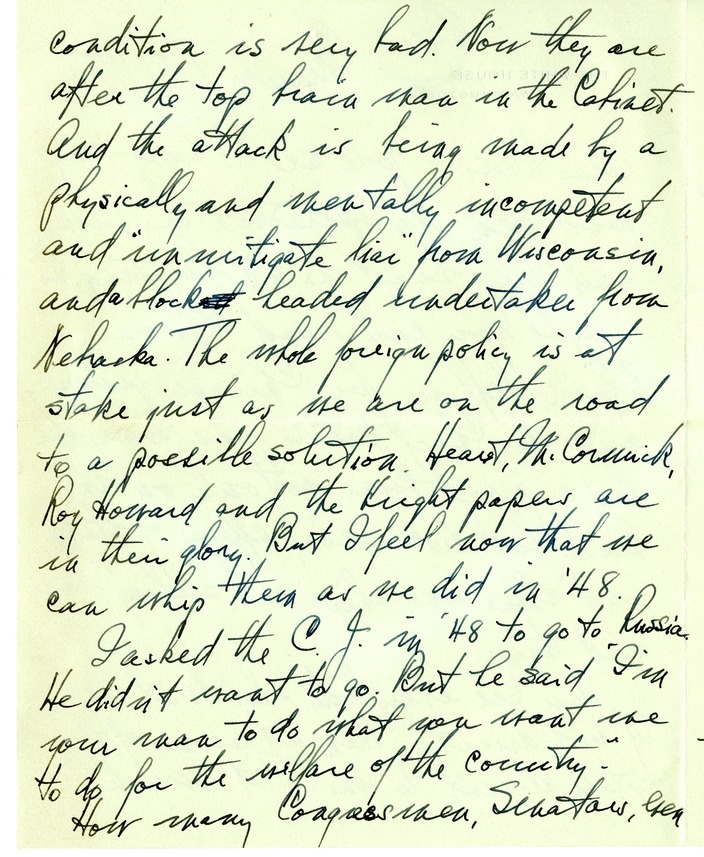 condition is very bad. Now they are
after the top brain man in the Cabinet.
And the attack is being made by a
physically and mentally incompetent
and "unmitigate liar" from Wisconsin,
and a block headed undertaker from
Nebraska. The whole foreign policy is at
stake just as we are on the road
to a possible solution. Hearst, McCormick,
Roy Howard and the Knight papers are
in their glory. But I feel now that we
can whip them as we did in '48.
I asked the C. J. in '48 to go to Russia.
He didn't want to go. But he said "I'm
your man to do what you want me
to do for the welfare of the country."
How many Congressmen, Senators, even